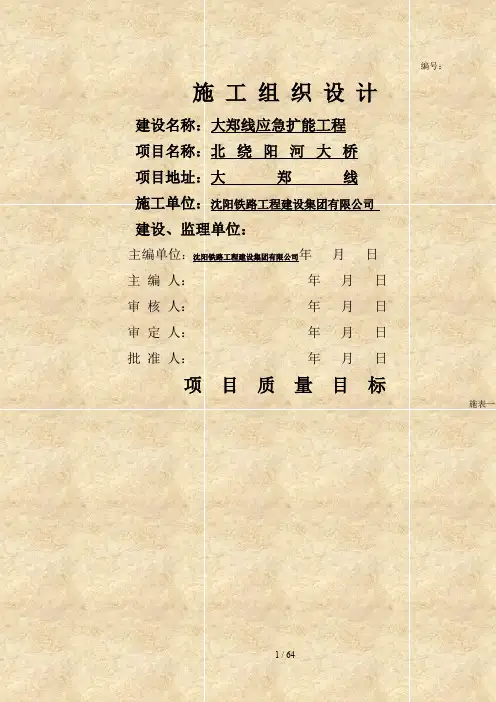 编号：
施工组织设计
建设名称：大郑线应急扩能工程
项目名称：北绕阳河大桥
项目地址：大郑线
施工单位：沈阳铁路工程建设集团有限公司
建设、监理单位：
主编单位：沈阳铁路工程建设集团有限公司年 月 日
主 编 人： 年 月 日
审 核 人： 年 月 日
审 定 人： 年 月 日
批 准 人： 年 月 日
项目质量目标
施表一
1 / 64